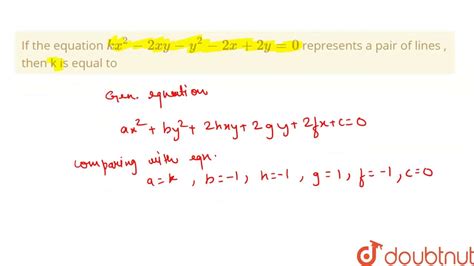 If the equation kx² − 2xy − y² − 2x + 2y = 0 represents a pair of lines ,
then k is equal to
Gen. equation
ax² + by² + 2hxy + 2gy + 2fx + c = 0
comparing with eqn.
a = k , b = -1 , h = -1 , g = 1 , f = -1 , c = 0
doubtnut